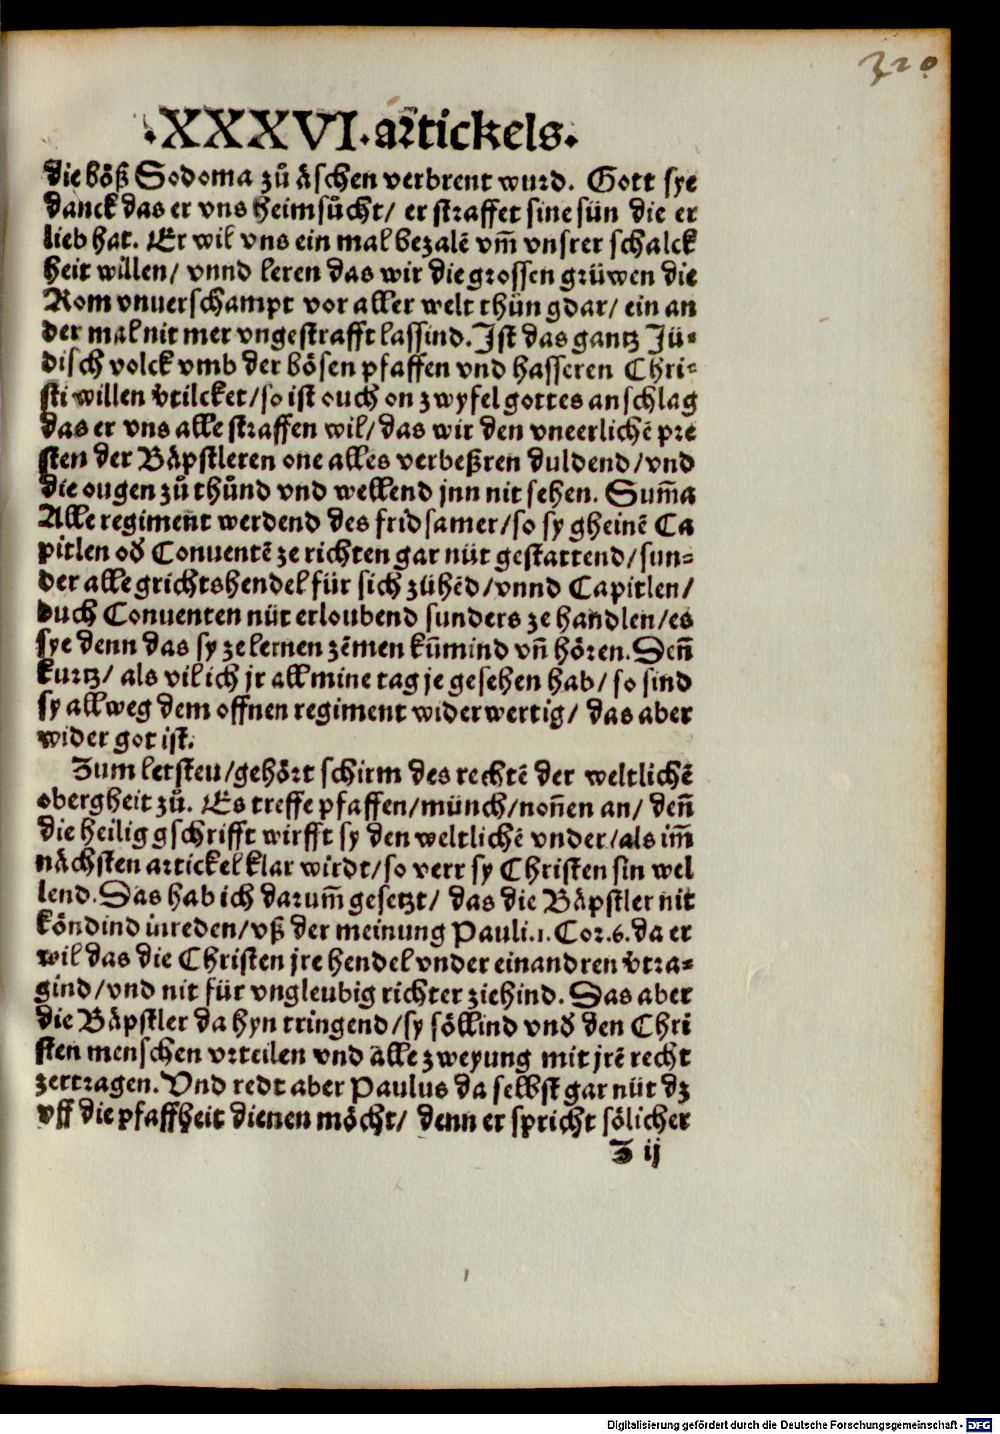 320
.XXXVI.artickels.
die böß Sodoma zů äschen verbrent wurd. Gott sye
danck das er vns heimsůcht/ er straffet sine sün die er
lieb hat. Er wil vns ein mal bezalē vm̃ vnsrer schalck
heit willen/ vnnd leren das wir die grossen grüwen die
Rom vnuerschampt vor aller welt thůn gdar/ ein an
der mal nit mer vngestrafft lassind. Ist das gantz Jü⸗
disch volck vmb der bösen pfaffen vnd hasseren Chri⸗
sti willen v̉tilcket/so ist ouch on zwyfel gottes anschlag
das er vns alle straffen wil/das wir den vneerlichē pre
sten der Bäpstleren one alles verbeßren duldend/vnd
die ougen zů thůnd vnd wellend jnn nit sehen. Sum̃a
Alle regiment werdend des fridsamer/so sy gheinē Ca
pitlen od̉ Conuentē ze richten gar nüt gestattend/sun⸗
der alle grichtshendel für sich zühēd/vnnd Capitlen/
ouch Conuenten nüt erloubend sunders ze handlen/es
sye denn das sy ze lernen zēmen kūmind vn̄ hören. Den̄
kurtz/ als vil ich jr all mine tag je gesehen hab/ so sind
sy allweg dem offnen regiment widerwertig/ das aber
wider got ist.
Zum letsten/gehört schirm des rechtē der weltlichē
obergheit zů. Es treffe pfaffen/münch/non̄en an/ den̄
die heilig gschrifft wirfft sy den weltlichē vnder/als im̃
nächsten artickel klar wirdt/so verr sy Christen sin wel
lend. Das hab ich darum̃ gesetzt/ das die Bäpstler nit
köndind inreden/vß der meinung Pauli.1. Cor.6. da er
wil das die Christen jre hendel vnder einandren v̉tra⸗
gind/vnd nit für vngleubig richter ziehind. Das aber
die Bäpstler da hyn tringend/sy söllind vnd̉ den Chri
sten menschen vrteilen vnd alle zweyung mit jrē recht
zertragen. Vnd redt aber Paulus da selbst gar nüt dz
vff die pfaffheit dienen möcht/ denn er spricht sölicher
Z ij
Digitalisierung gefördert durch die Deutsche Forschungsgemeinschaft - DFG